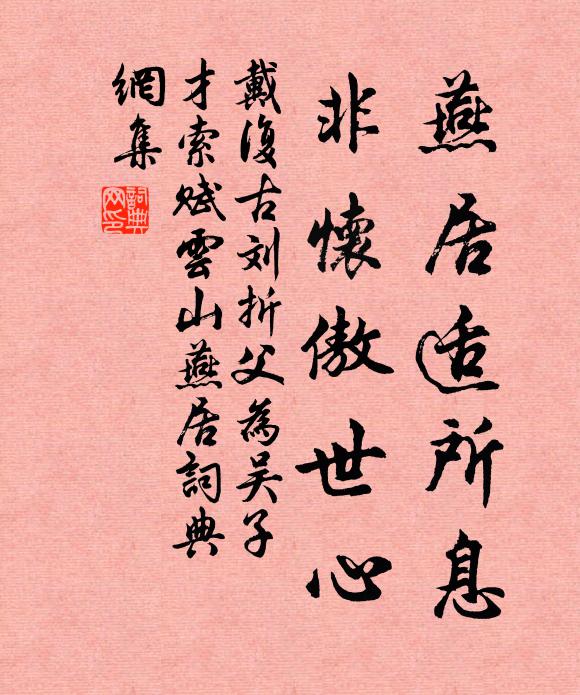 燕居适所息
非懷傲世心
戴復古刘折父為吴子
才索赋雲山燕居詞典
網集
詞典網印